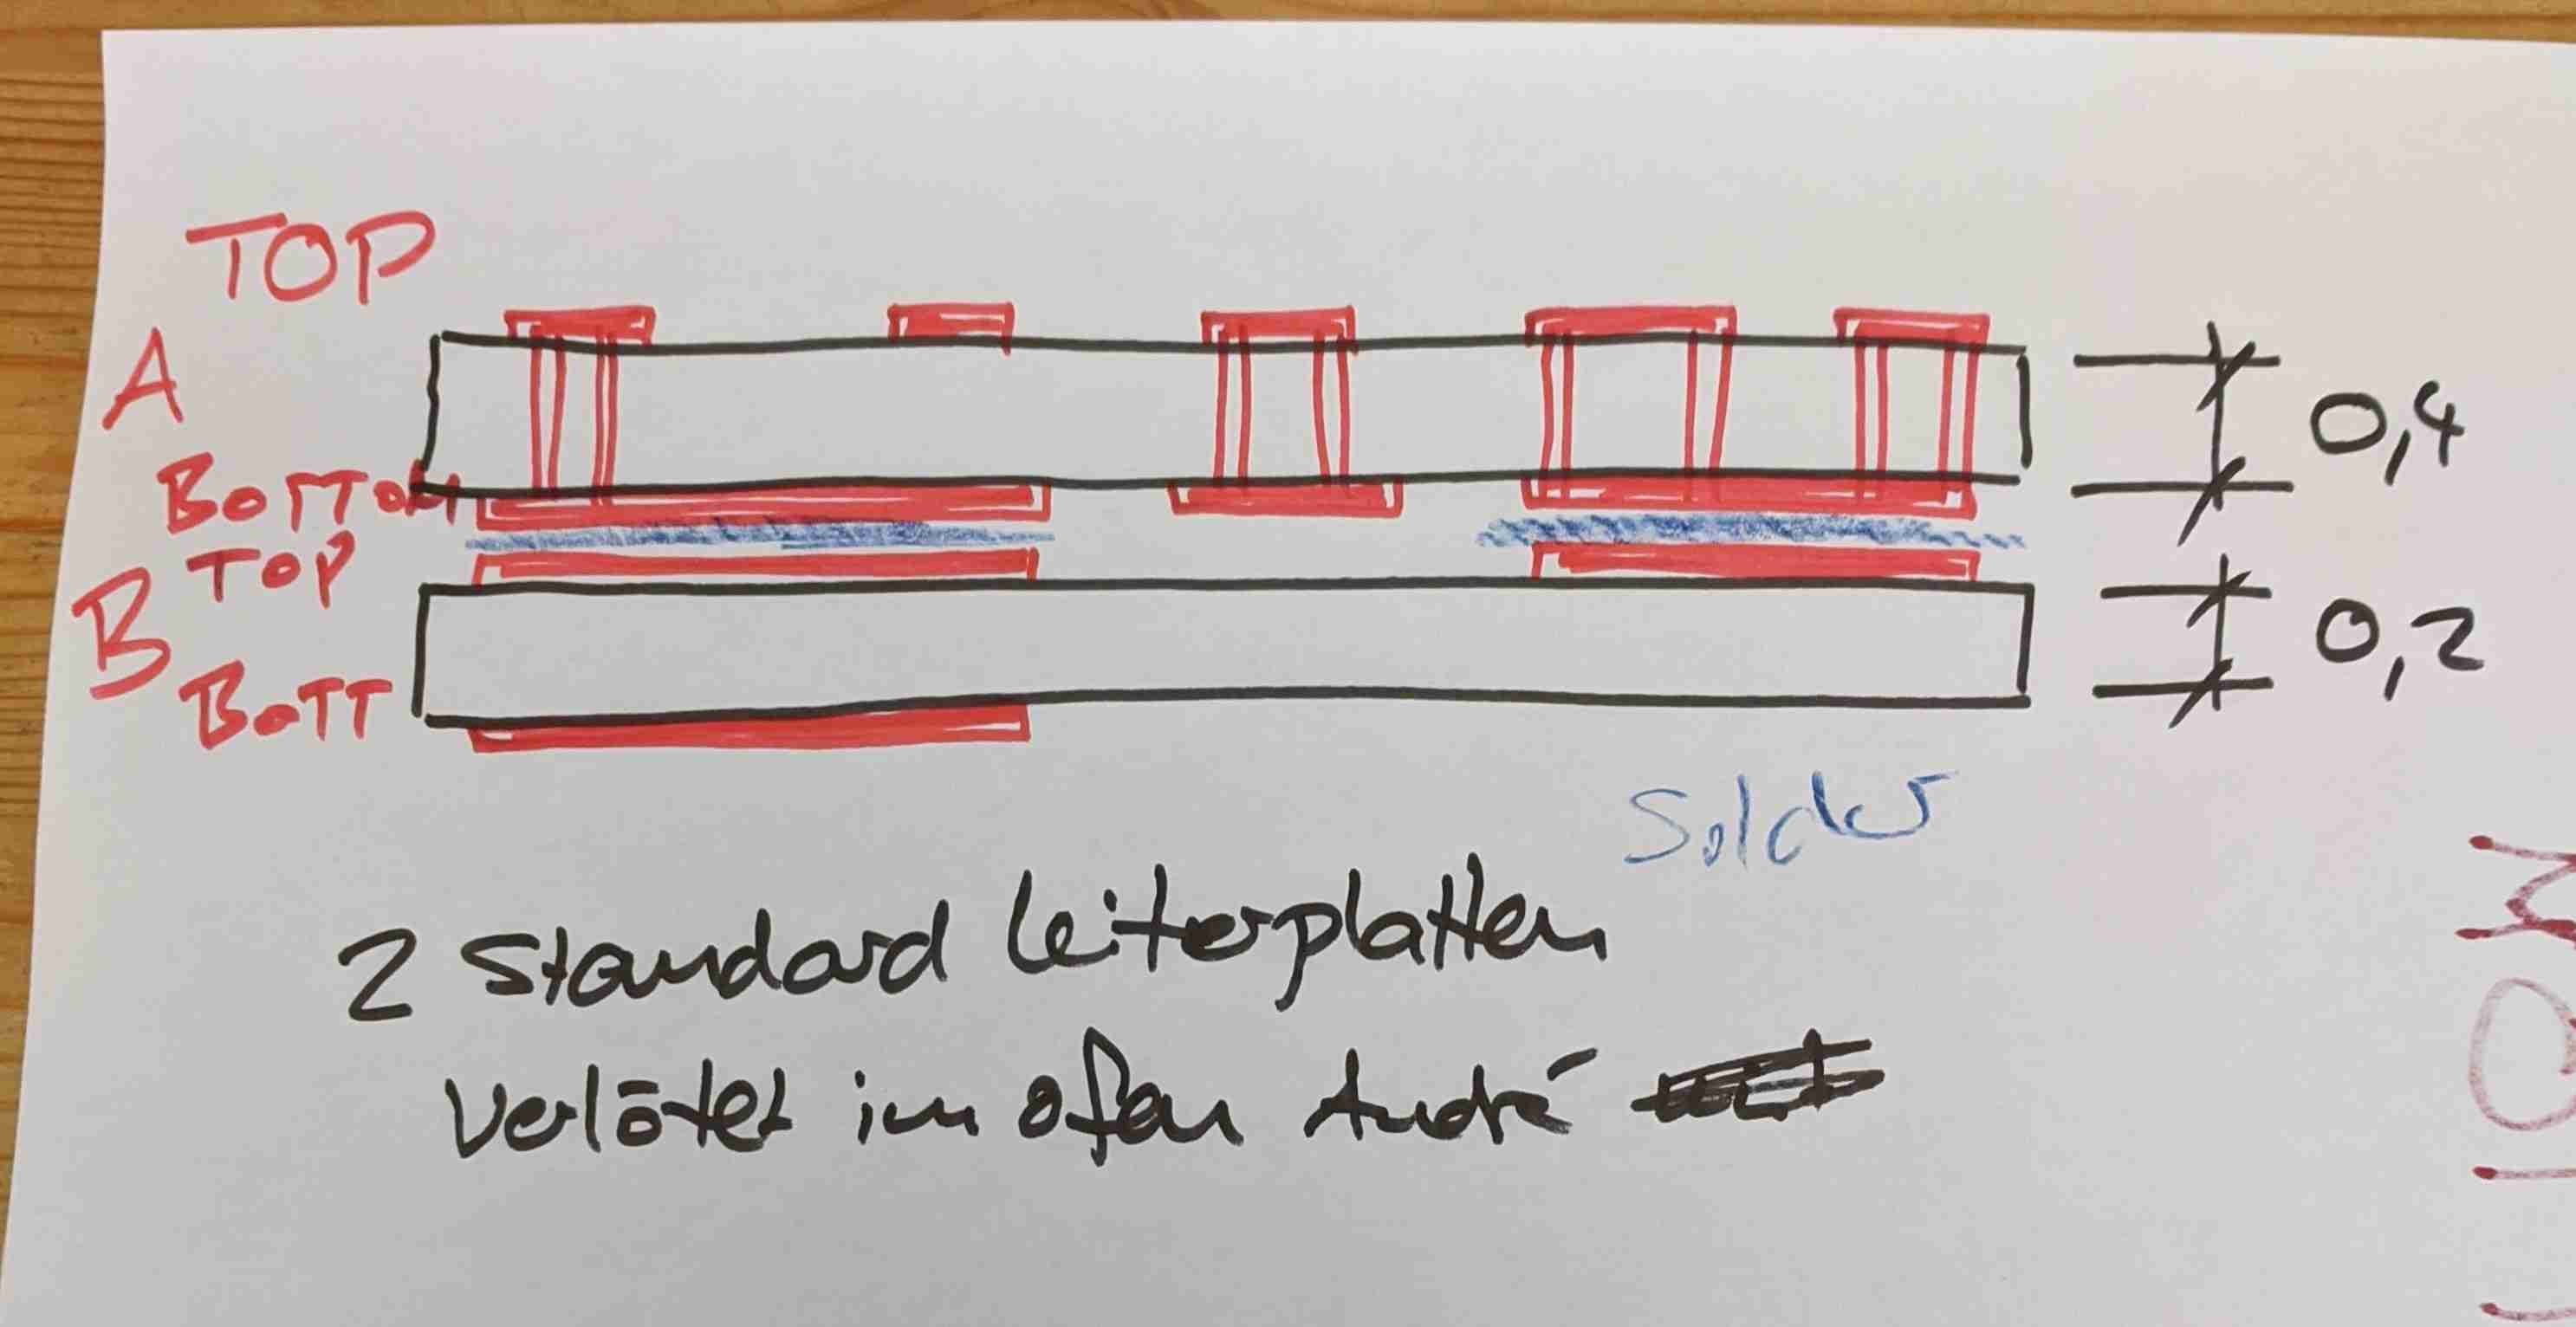 TOP
A
0,4
BOTTOM
TOP
B
0,2
BOTT
Solder
2 Standard Leiterplatten
verlötet im Ofen André